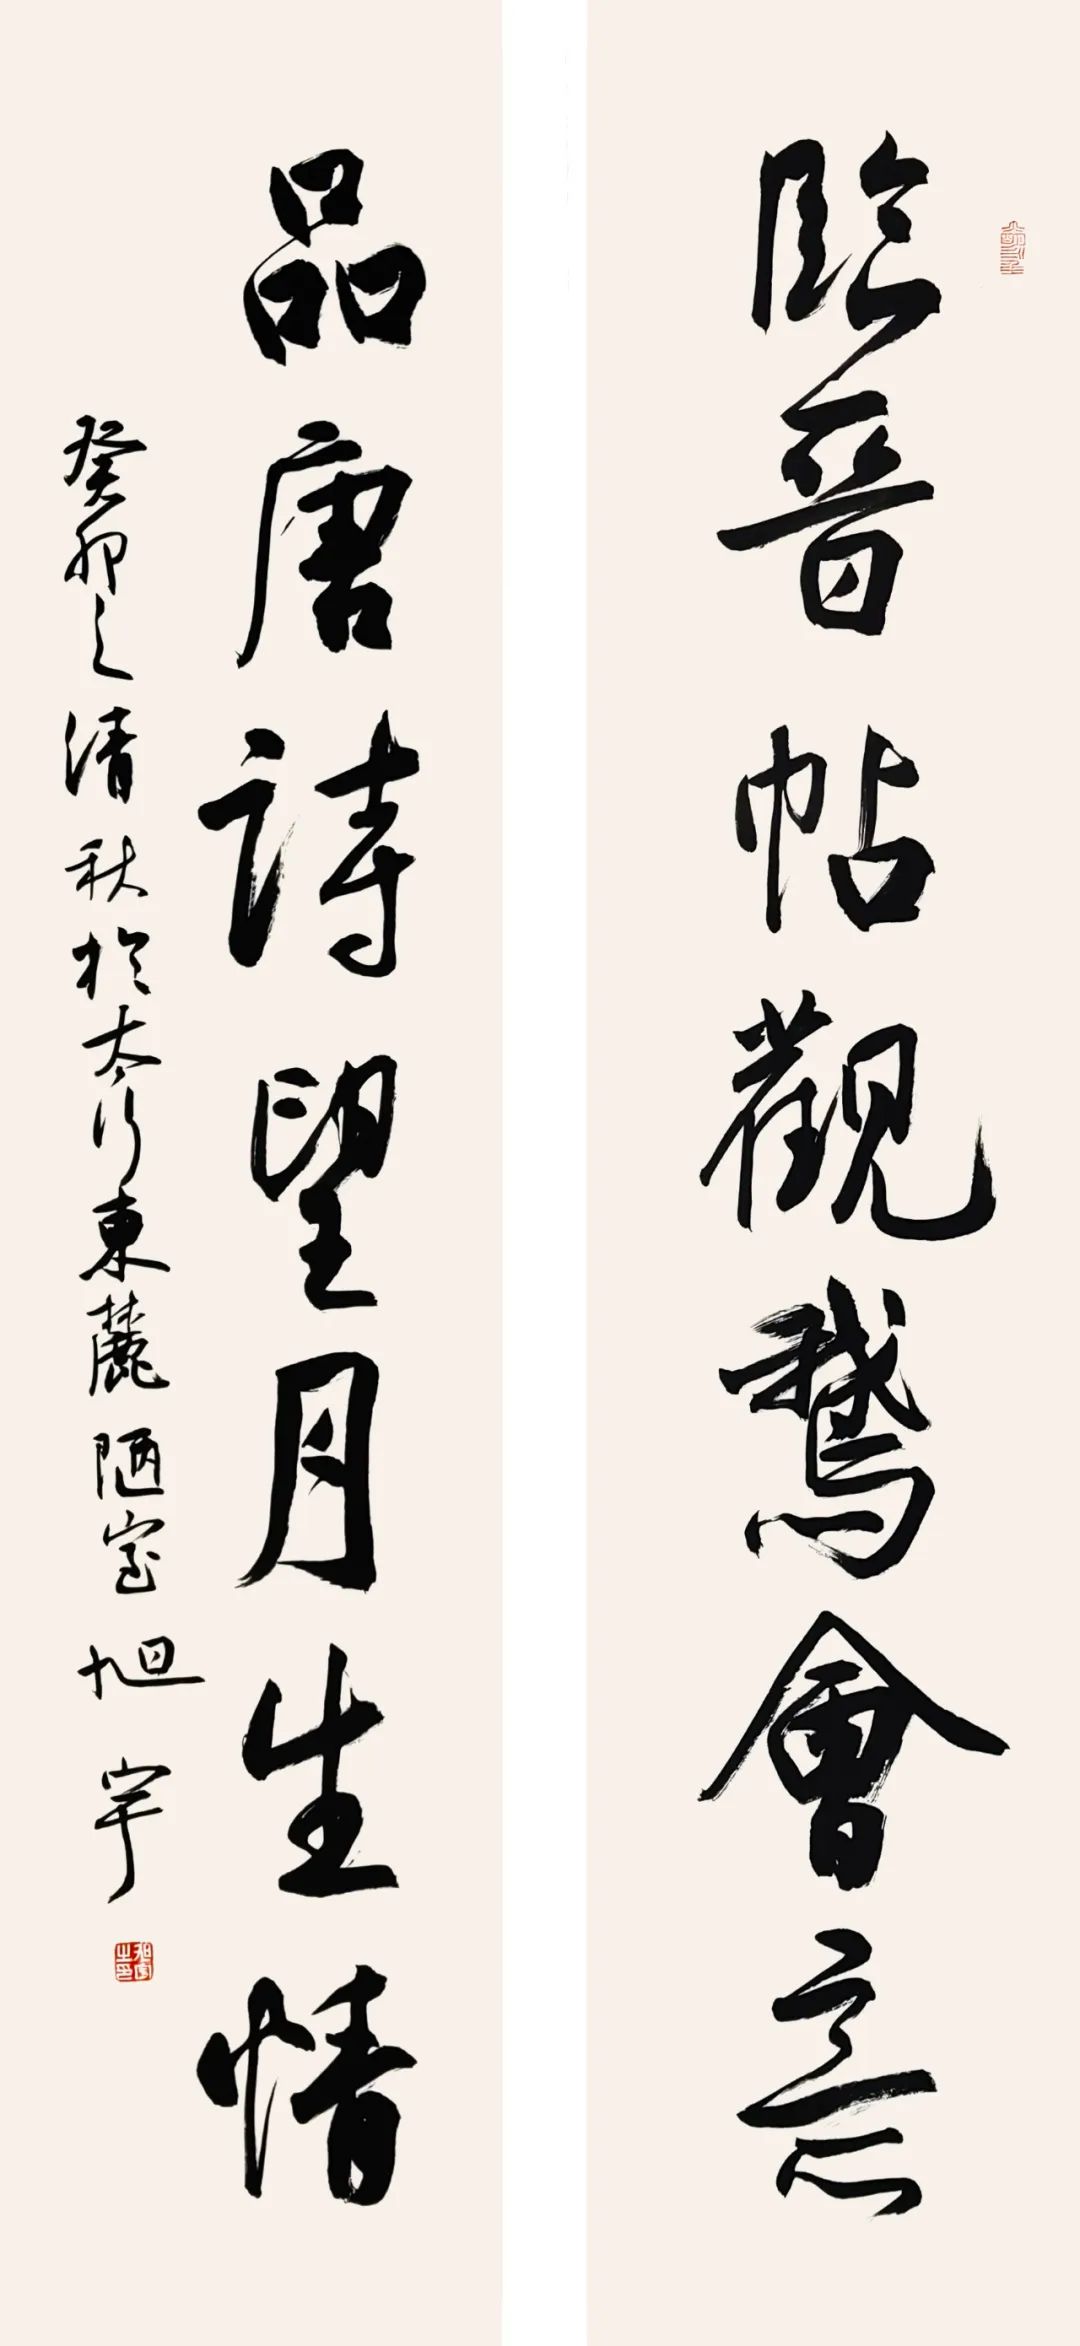 臨晉帖觀鵝會意
品唐詩望月生情
癸卯之清秋於太行東麓陋室旭宇
旭宇之印